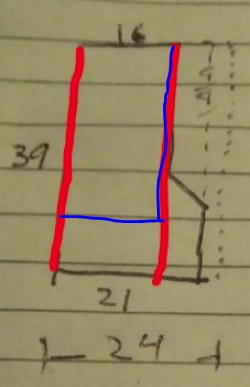 16
39
21
24